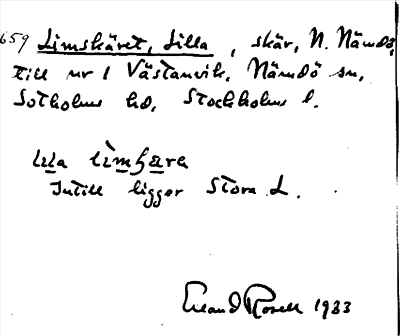 659 Limskäret, Lilla, skär, N. Nämdö,
till nr 1 Västanvik, Nämdö sn,
Sotholms hd, Stockholms l.
lıla
Intill ligger Stora L.
Erland Rosell 1933